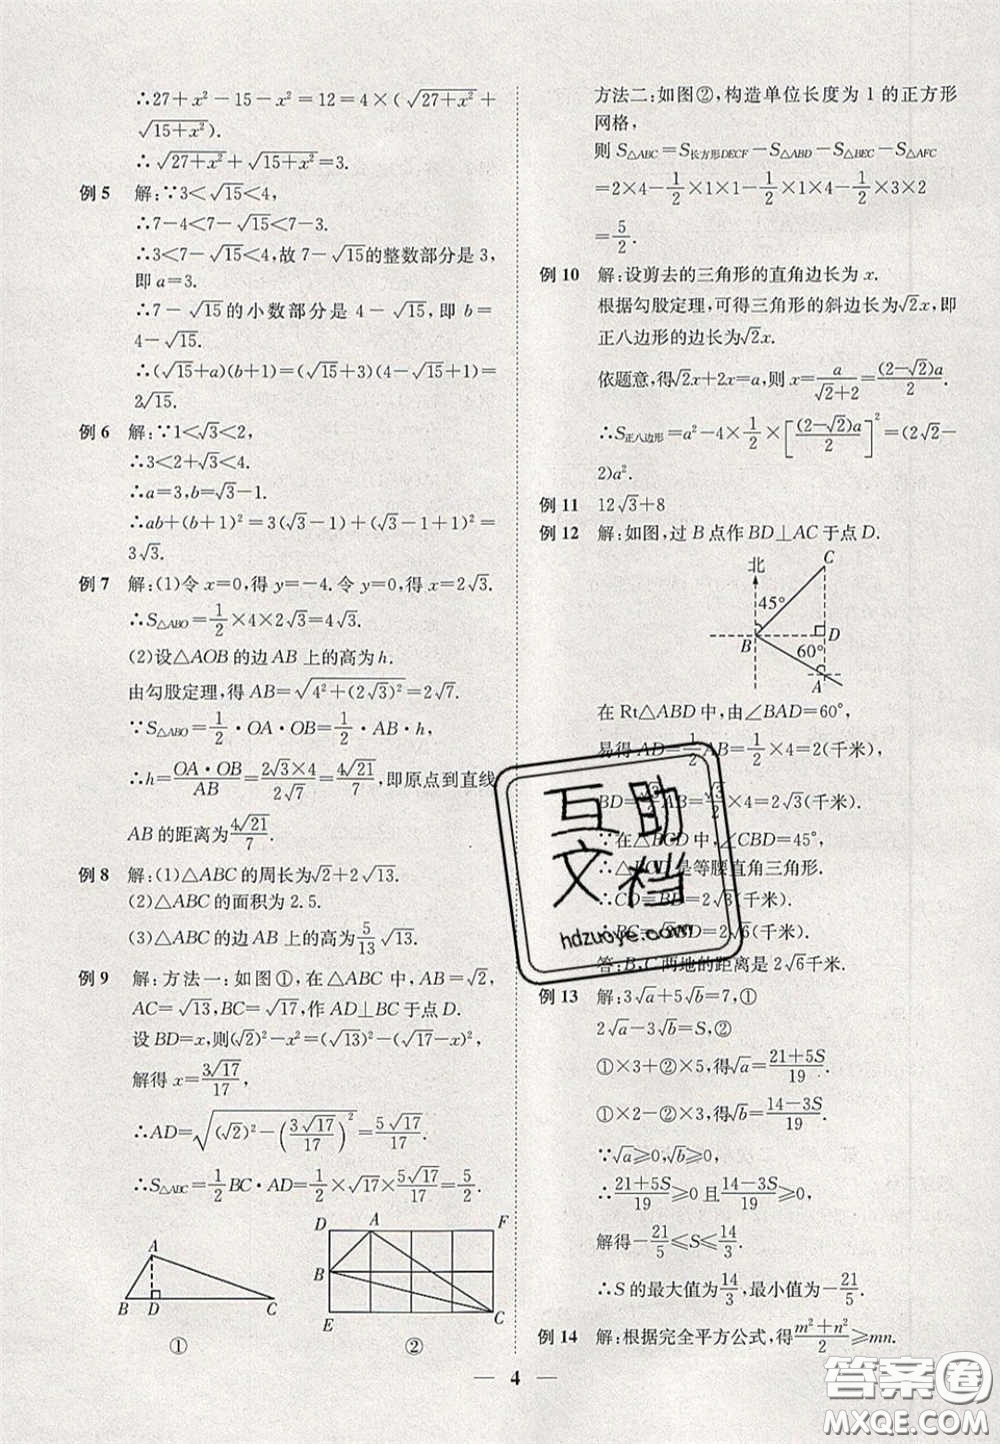 ∴27+x²-15-x²=12=4×(√(27+x²)+
√(15+x²)).
∴√(27+x²)+√(15+x²)=3.
例 5 解:∵3<√15<4,
∴7-4<7-√15<7-3.
∴3<7-√15<4,故 7-√15的整数部分是 3,
即 a=3.
∴7-√15的小数部分是 4-√15,即 b=
4-√15.
∴(√15+a)(b+1)=(√15+3)(4-√15+1)=
2√15.
例 6 解:∵1<√3<2,
∴3<2+√3<4.
∴a=3,b=√3-1.
∴ab+(b+1)²=3(√3-1)+(√3-1+1)²=
3√3.
例 7 解:(1)令 x=0,得 y=-4.令 y=0,得 x=2√3.
∴S△ABO=1/2×4×2√3=4√3.
(2)设△AOB的边 AB 上的高为h.
由勾股定理,得 AB=√(4²+(2√3)²)=2√7.
∵S△ABO=1/2·OA·OB=1/2·AB·h,
∴h=OA·OB/AB=2√3×4/2√7=4√21/7,即原点到直线
AB 的距离为4√21/7.
例 8 解:(1)△ABC的周长为√2+2√13.
(2)△ABC的面积为 2.5.
(3)△ABC的边 AB 上的高为5/13√13.
例 9 解:方法一:如图①,在△ABC 中,AB=√2,
AC=√13,BC=√17,作 AD⊥BC 于点 D.
设 BD=x,则(√2)²-x²=(√13)²-(√17-x)²,
解得 x=3√17/17,
∴AD=√((√2)²-(3√17/17)²)=5√17/17.
∴S△ABC=1/2BC·AD=1/2×√17×5√17/17=5/2.
A
B D C
①
D A F
B
E C
②
方法二:如图②,构造单位长度为 1 的正方形
网格,
则 S△ABC=S长方形DECF-S△ABD-S△BEC-S△AFC
=2×4-1/2×1×1-1/2×4×1-1/2×3×2
=5/2.
例 10 解:设剪去的三角形的直角边长为 x.
根据勾股定理,可得三角形的斜边长为√2x,即
正八边形的边长为√2x.
依题意,得√2x+2x=a,则 x=a/(√2+2)=(2-√2)a/2.
∴S正八边形=a²-4×1/2×[(2-√2)a/2]²=(2√2-
2)a².
例 11 12√3+8
例 12 解:如图,过 B 点作 BD⊥AC 于点 D.
北
C
45°
B D
60°
A
在 Rt△ABD 中,由∠BAD=60°,
易得 AD=1/2AB=1/2×4=2(千米),
BD=√3/2AB=√3/2×4=2√3(千米).
∵在△BCD 中,∠CBD=45°,
∴△BCD是等腰直角三角形.
∴CD=BD=2√3(千米).
∴BC=√2BD=2√6(千米).
答:B,C 两地的距离是 2√6千米.
例 13 解:3√a+5√b=7,①
2√a-3√b=S,②
①×3+②×5,得√a=(21+5S)/19.
①×2-②×3,得√b=(14-3S)/19.
∵√a≥0,√b≥0,
∴(21+5S)/19≥0且(14-3S)/19≥0.
解得-21/5≤S≤14/3.
∴S 的最大值为14/3,最小值为-21/5.
例 14 解:根据完全平方公式,得(m²+n²)/2≥mn.
4
互助
文档
hdzuoye.com
答案圈
MXQE.COM